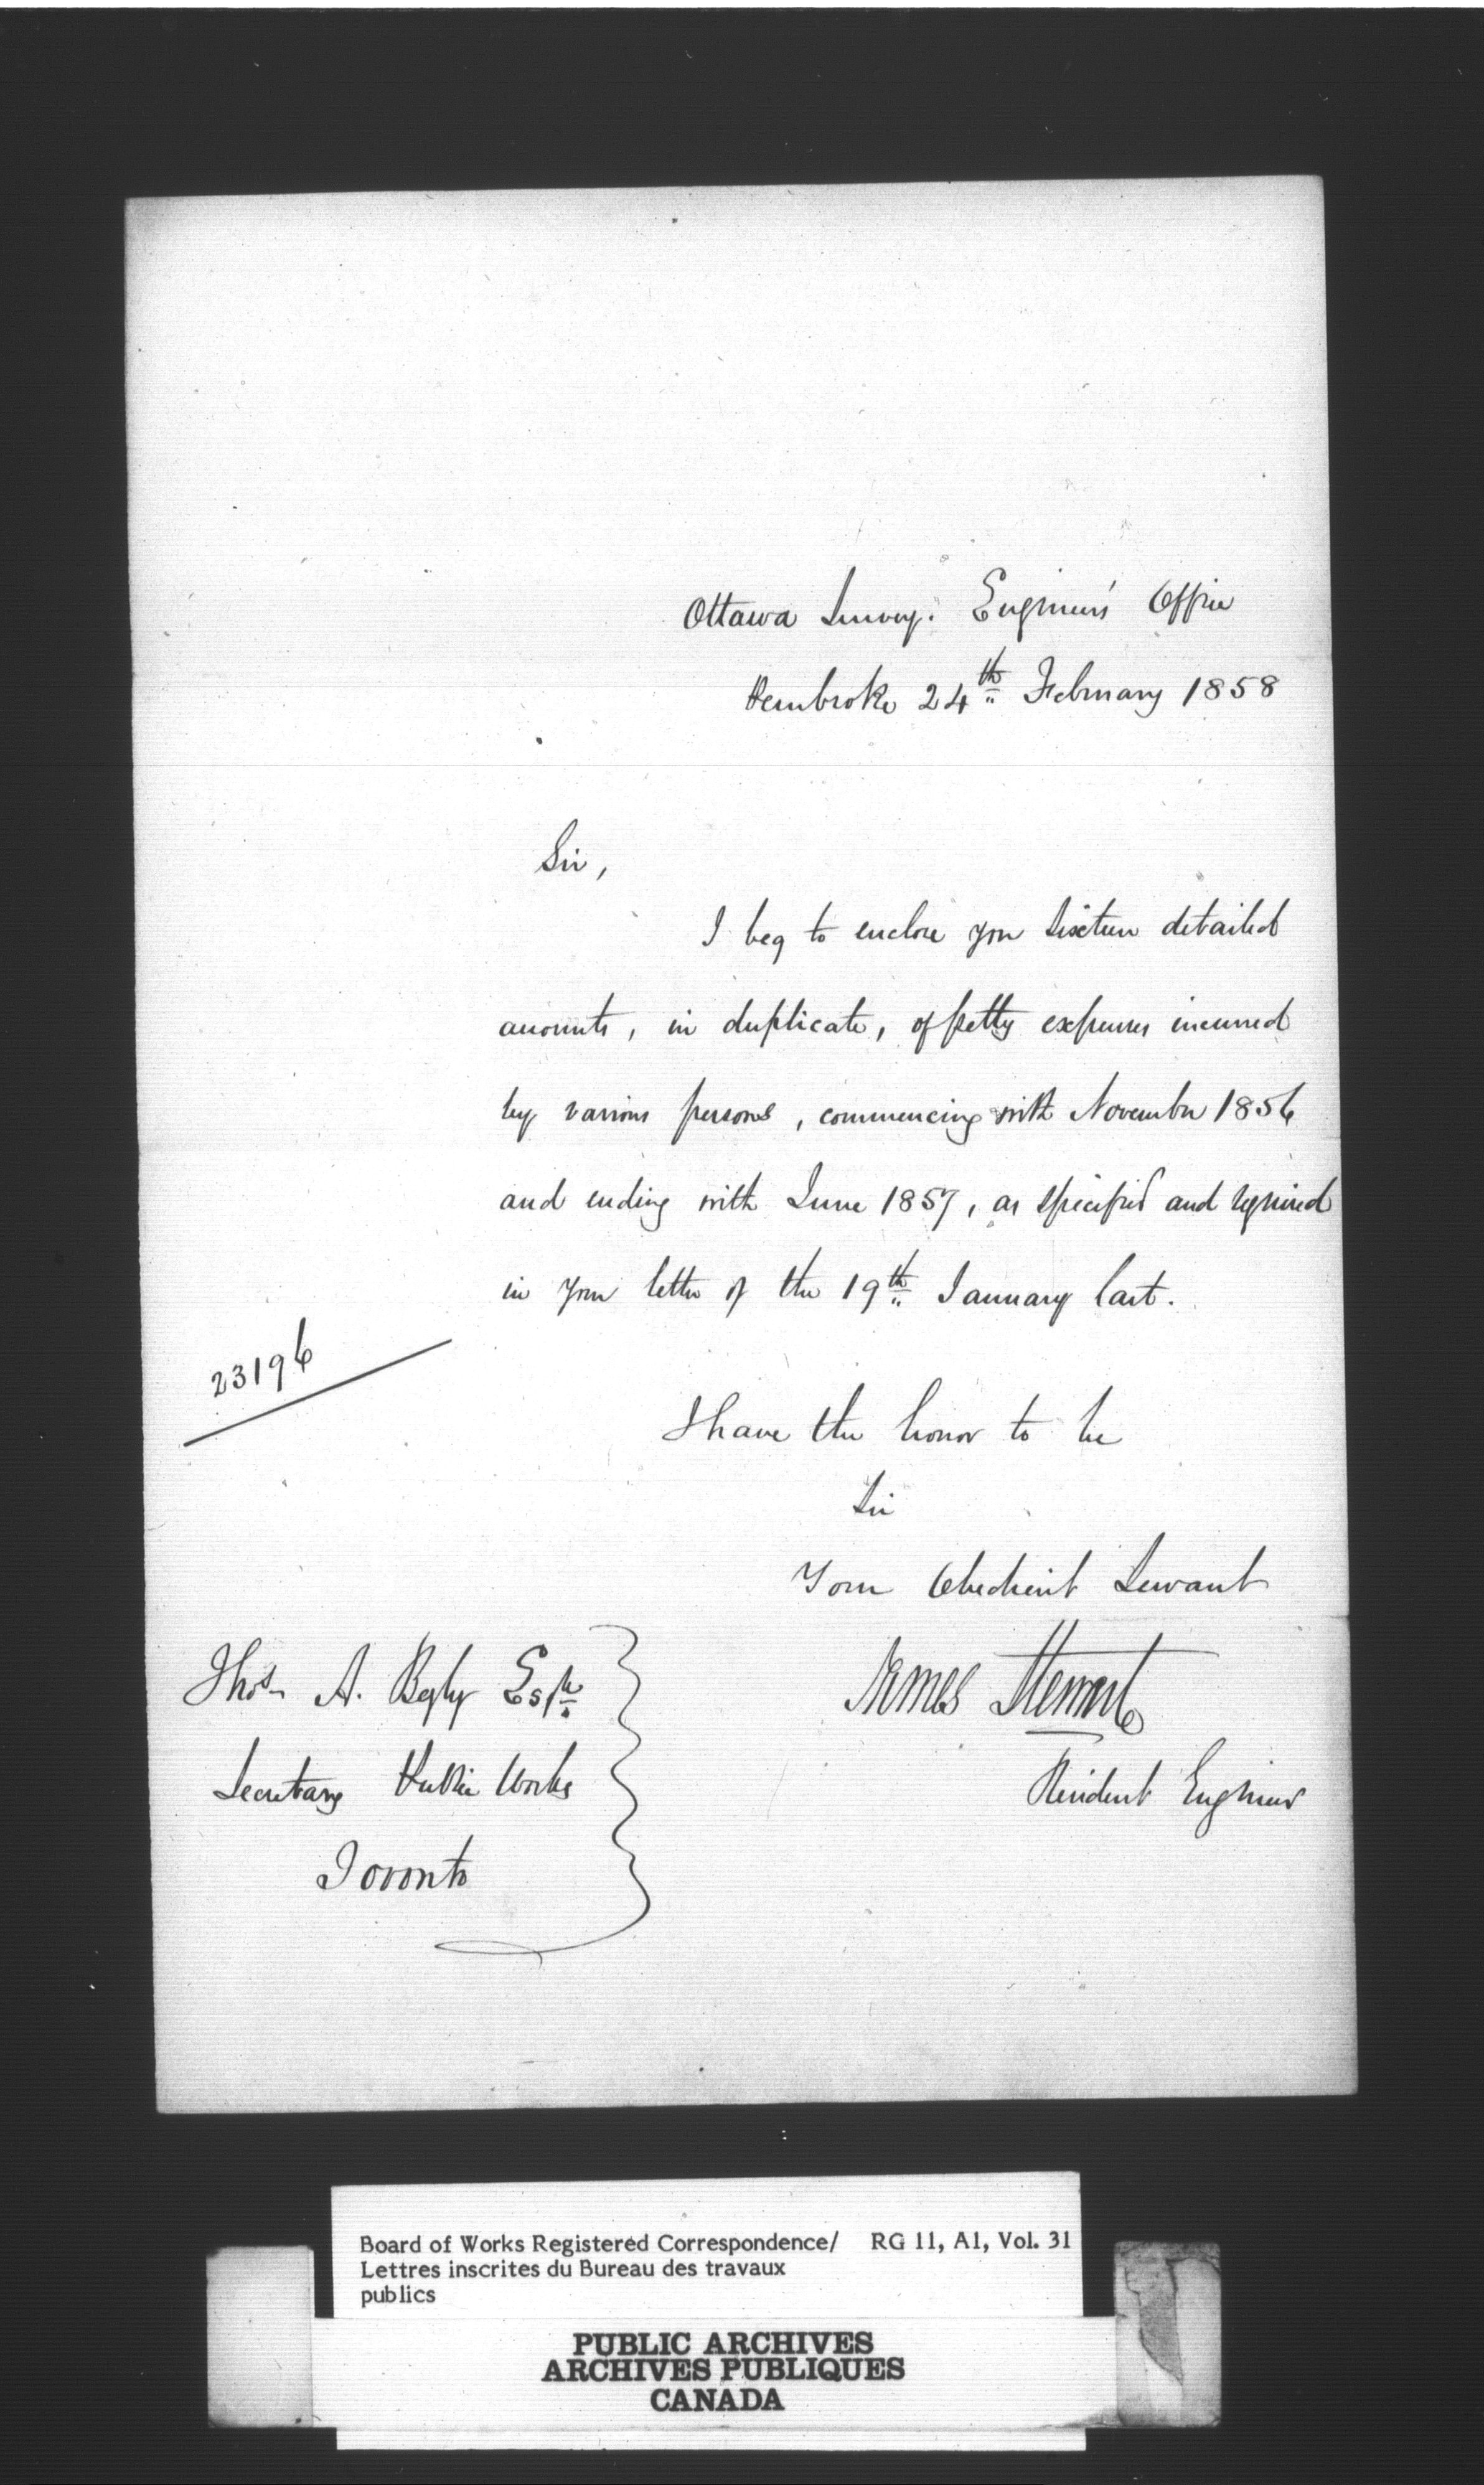 Ottawa Survey. Engineer's Office
Pembroke 24th February 1858
Sir,
I beg to enclose you sixteen detailed
accounts, in duplicate, of petty expenses incurred
by various persons, commencing with November 1856
and ending with June 1857, as specified and required
in your letter of the 19th January last.
23196
I have the honor to be
Sir
Your Obedient Servant
James Stewart
Resident Engineer
Thos. A. Begly Esqre
Secretary Public Works
Toronto
Board of Works Registered Correspondence/ RG 11, A1, Vol. 31
Lettres inscrites du Bureau des travaux
publics
PUBLIC ARCHIVES
ARCHIVES PUBLIQUES
CANADA